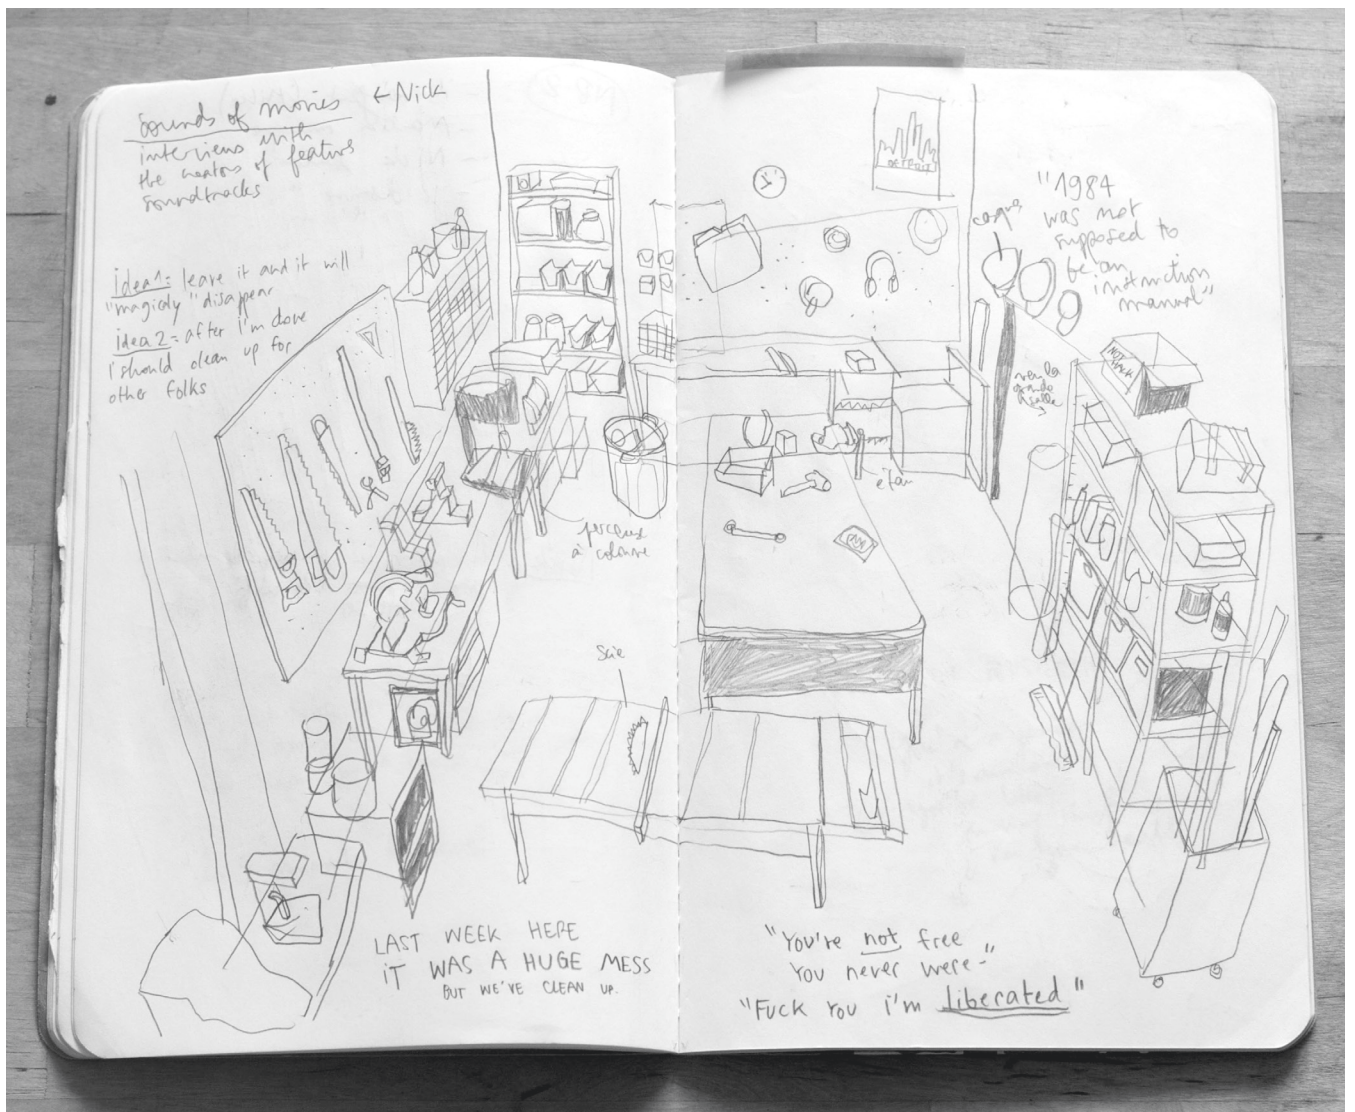 Sounds of movies
← Nick
interviews with
the creators of feature
soundtracks
idea 1: leave it and it will
"magicaly" disappear
idea 2: after I'm done
I should clean up for
other folks
DETROIT
casque
"1984
was not
supposed to
be an
instruction
manual"
NOT
HACK
étau
perceuse
à colonne
Scie
LAST WEEK HERE
iT WAS A HUGE MESS
BUT WE'VE CLEAN UP.
"You're not free
You never were-"
"Fuck You i'm Liberated"